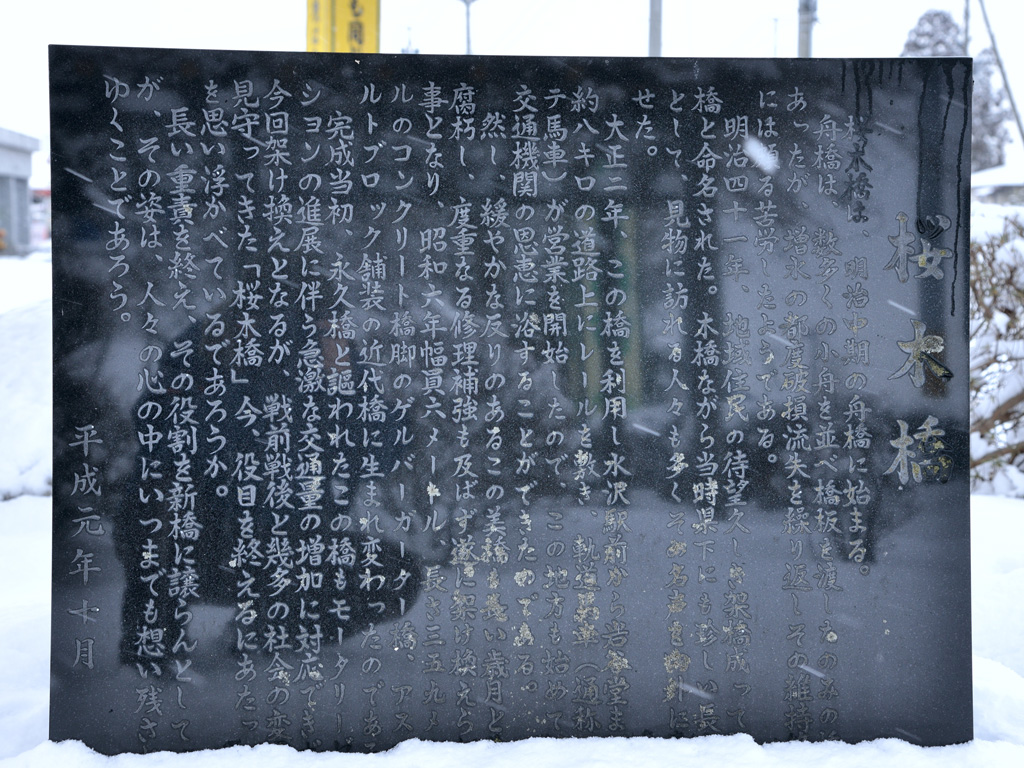 桜木橋
桜木橋は、明治中期の舟橋に始まる。
舟橋は、数多くの小舟を並べ橋板を渡したのみの
あったが、増水の都度破損流失を繰り返しその維持
には頗る苦労したようである。
明治四十一年、地域住民の待望久しき架橋成って
橋と命名された。木橋ながら当時県下にも珍しい長
として、見物に訪れる人々も多くその名声を郡外に
せた。
大正二年、この橋を利用し水沢駅前から岩谷堂ま
約八キロの道路上にレールを敷き、軌道馬車（通称
テ馬車）が営業を開始したので、この地方も始めて
交通機関の恩恵に浴することができたのである。
然し、緩やかな反りのあるこの美橋も長い歳月と
腐朽し、度重なる修理補強も及ばず遂に架け換えら
事となり、昭和六年幅員六メートル、長さ三五九
ルのコンクリート橋脚のゲルバーガーター橋、アス
ルトブロック舗装の近代橋に生まれ変わったのである
完成当初、永久橋と謳われたこの橋もモータリー
ションの進展に伴う急激な交通量の増加に対応でき
今回架け換えとなるが、戦前戦後と幾多の社会の変
見守ってきた「桜木橋」今、役目を終えるにあたっ
を思い浮かべているであろうか。
長い重責を終え、その役割を新橋に譲らんとして
が、その姿は、人々の心の中にいつまでも想い残さ
ゆくことであろう。
平成元年七月